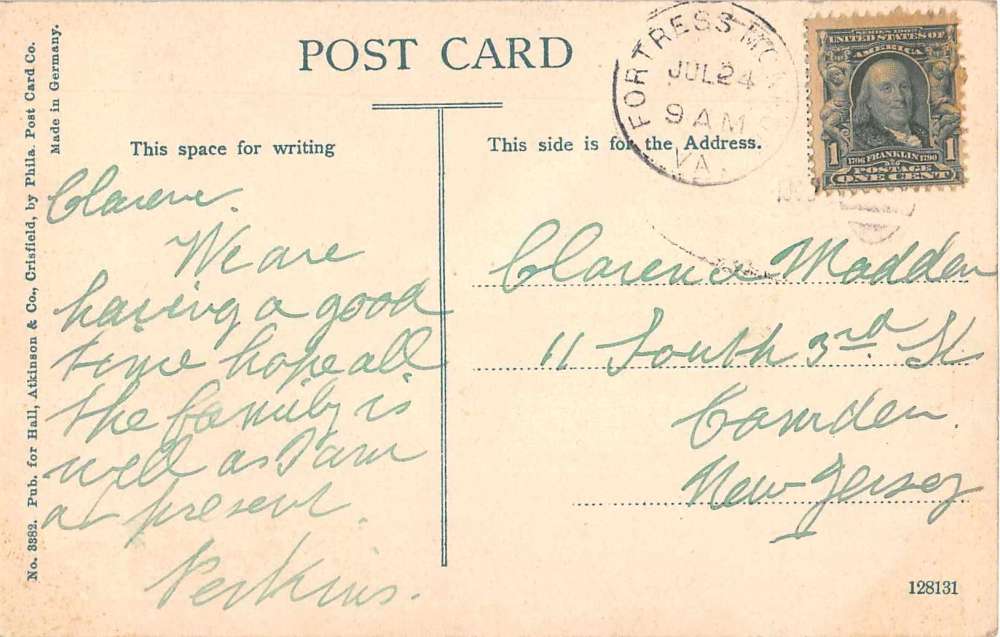 POST CARD
This space for writing
This side is for the Address.
Clarence.
We are
having a good
time hope all
the family is
well as I am
at present.
Perkins.
Clarence Madden
11 South 3rd St
Camden.
New-Jersey
FORTRESS MONROE
JUL 24
9 AM
VA.
SERIES 1902
UNITED STATES OF
AMERICA
1706 FRANKLIN 1790
POSTAGE
1 ONE CENT 1
No. 3382. Pub. for Hall, Atkinson & Co., Crisfield, by Phila. Post Card Co.
Made in Germany.
128131